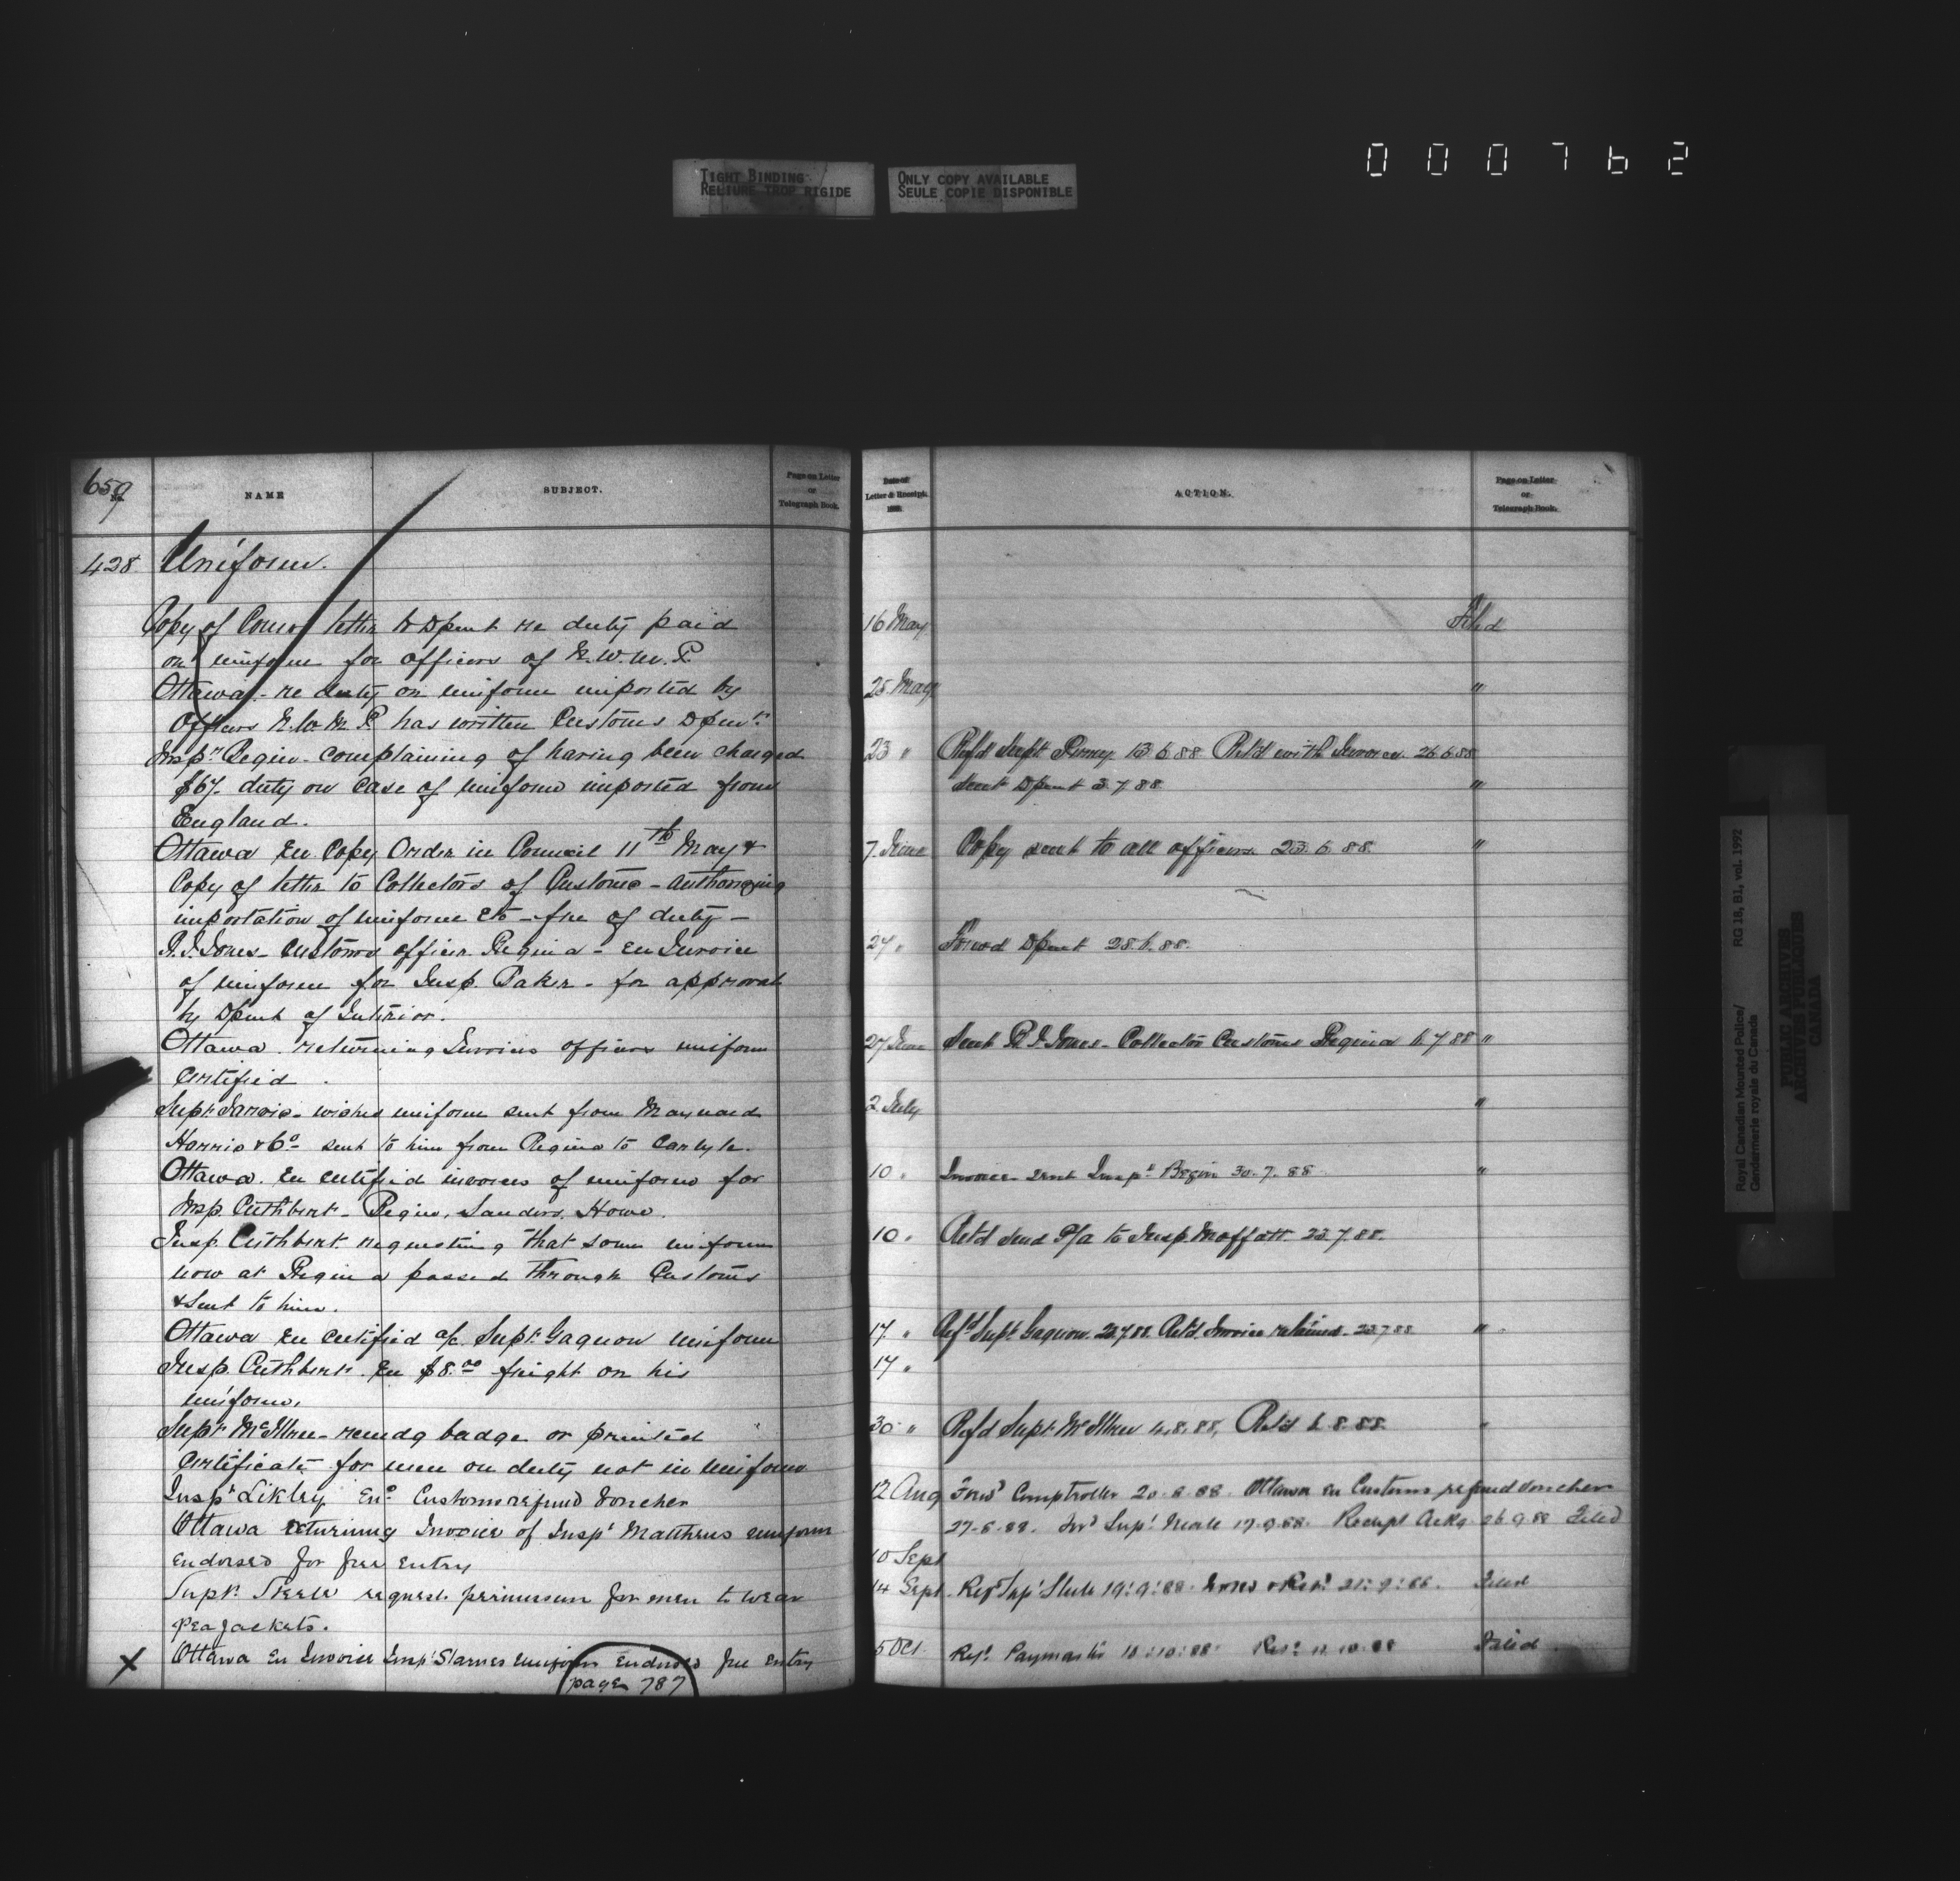 000762
TIGHT BINDING
RELIURE TROP RIGIDE
ONLY COPY AVAILABLE
SEULE COPIE DISPONIBLE
659
No.
NAME
SUBJECT.
Page on Letter
or
Telegraph Book.
428 Uniform.
Copy of letter to Dpmt re duty paid
on uniform for officers of N.W.M.P.
Ottawa - re duty on uniform imported by
Officers N.W.M.P. has written Customs Dpmt.
Inspr Begin - complaining of having been charged
$67. duty on case of uniform imported from
England.
Ottawa En Copy Order in Council 11th May &
Copy of letter to Collectors of Customs - authorizing
importation of uniform &c - free of duty -
Jones - Customs officer Regina - En Invoice
of uniform for Insp. Baker - for approval
by Dpmt of Interior.
Ottawa. returning Invoices officers uniform
Certified.
Supt. Jarvis - wishes uniform sent from Maynard
Harris & Co - sent to him from Regina to Carlyle.
Ottawa. En certified invoices of uniform for
Insp. Cuthbert - Begin, Sanders, Howe.
Insp. Cuthbert. requesting that some uniform
now at Regina passed through Customs
& sent to him.
Ottawa En Certified a/c. Supt. Gagnon uniform
Insp. Cuthbert. En $8.00 freight on his
uniform.
Supt McIllree - recmdg badge or printed
Certificate for men on duty not in uniform
Inspr Likley Enc Customs refund voucher
Ottawa returning Invoice of Inspr Matthews uniform
Endorsed for free Entry
Supt. Steele request permission for men to wear
pea Jackets.
X Ottawa En Invoice Inspr Starnes Uniform Endorsed free Entry
page 787
Date of
Letter & Receipt.
188
ACTION.
Page on Letter
or
Telegraph Book.
16 May Filed
25 May "
23 " Refd Supt Perry 13.6.88 Retd with Invoice. 26.6.88
Sent Dpmt 3.7.88 "
7. June Copy sent to all officers 23.6.88 "
24 " Forwd Dpmt 28.6.88.
27 June Sent Jones - Collector Customs Regina 6.7.88 "
2 July "
10 " Invoice sent Inspr Begin 30.7.88 "
10 " Retd Send to Insp. Moffatt 23.7.88.
17 " Refd Supt Gagnon. Retd. Invoice retained. 23.7.88 "
17 "
30 " Refd Supt McIllree 4.8.88, Retd 6.8.88. "
12 Aug Forwd Comptroller 20.8.88 Ottawa En Customs refund voucher
27-8-88. Supt Neale 17.9.88 Receipt Ackg 26.9.88 Filed
10 Sept
14 Sept. Refd Supt Steele 19:9:88 Retd 21:9:88. Filed
5 Oct. Refd Paymaster 10:10:88 Retd 11.10.88 Filed
Royal Canadian Mounted Police/
Gendarmerie royale du Canada
RG 18, B1, vol. 1992
PUBLIC ARCHIVES
ARCHIVES PUBLIQUES
CANADA